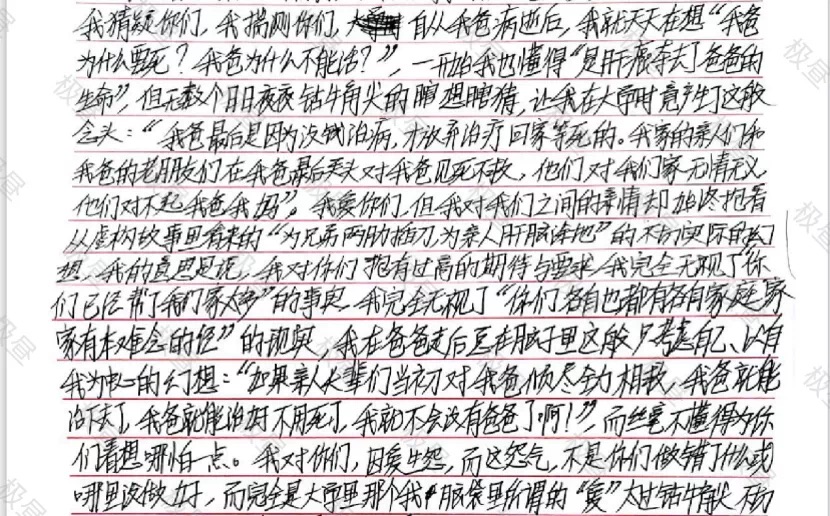 我猜疑你们，我揣测你们，自从我爸病逝后，我就天天在想“我爸
为什么要死？我爸为什么不能活？”，一开始我也懂得“是肝癌夺去了爸爸的
生命”，但无数个日日夜夜钻牛角尖的瞎想瞎猜，让我在大学时竟产生了这般
念头：“我爸最后是因为没钱治病，才放弃治疗回家等死的。我家的亲人们和
我爸的老朋友们在我爸最后关头对我爸见死不救，他们对我们家无情无义，
他们对不起我爸我妈”。我爱你们，但我对我们之间的亲情却始终抱着
从虚构故事里看来的“为兄弟两肋插刀为亲人肝脑涂地”的不切实际的幻
想，我的意思是说，我对你们抱有过高的期待与要求，我完全无视了“你
们已经帮了我们家太多”的事实，我完全无视了“你们各自也都有各自家庭，家
家有本难念的经”的现实，我在爸爸走后总在脑子里这般只考虑自己、以自
我为中心的幻想：“如果亲人长辈们当初对我爸倾尽全力相救，我爸就能
活下去了，我爸就能治好不用死了，我就不会没有爸爸了啊！”，而丝毫不懂得为你
们着想哪怕一点。我对你们，因爱生怨，而这怨气，不是你们做错了什么或
哪里没做好，而完全是大学里那个我脑袋里所谓的“爱”太过钻牛角尖不切
极昼
极昼
极昼
极昼
极昼
极昼